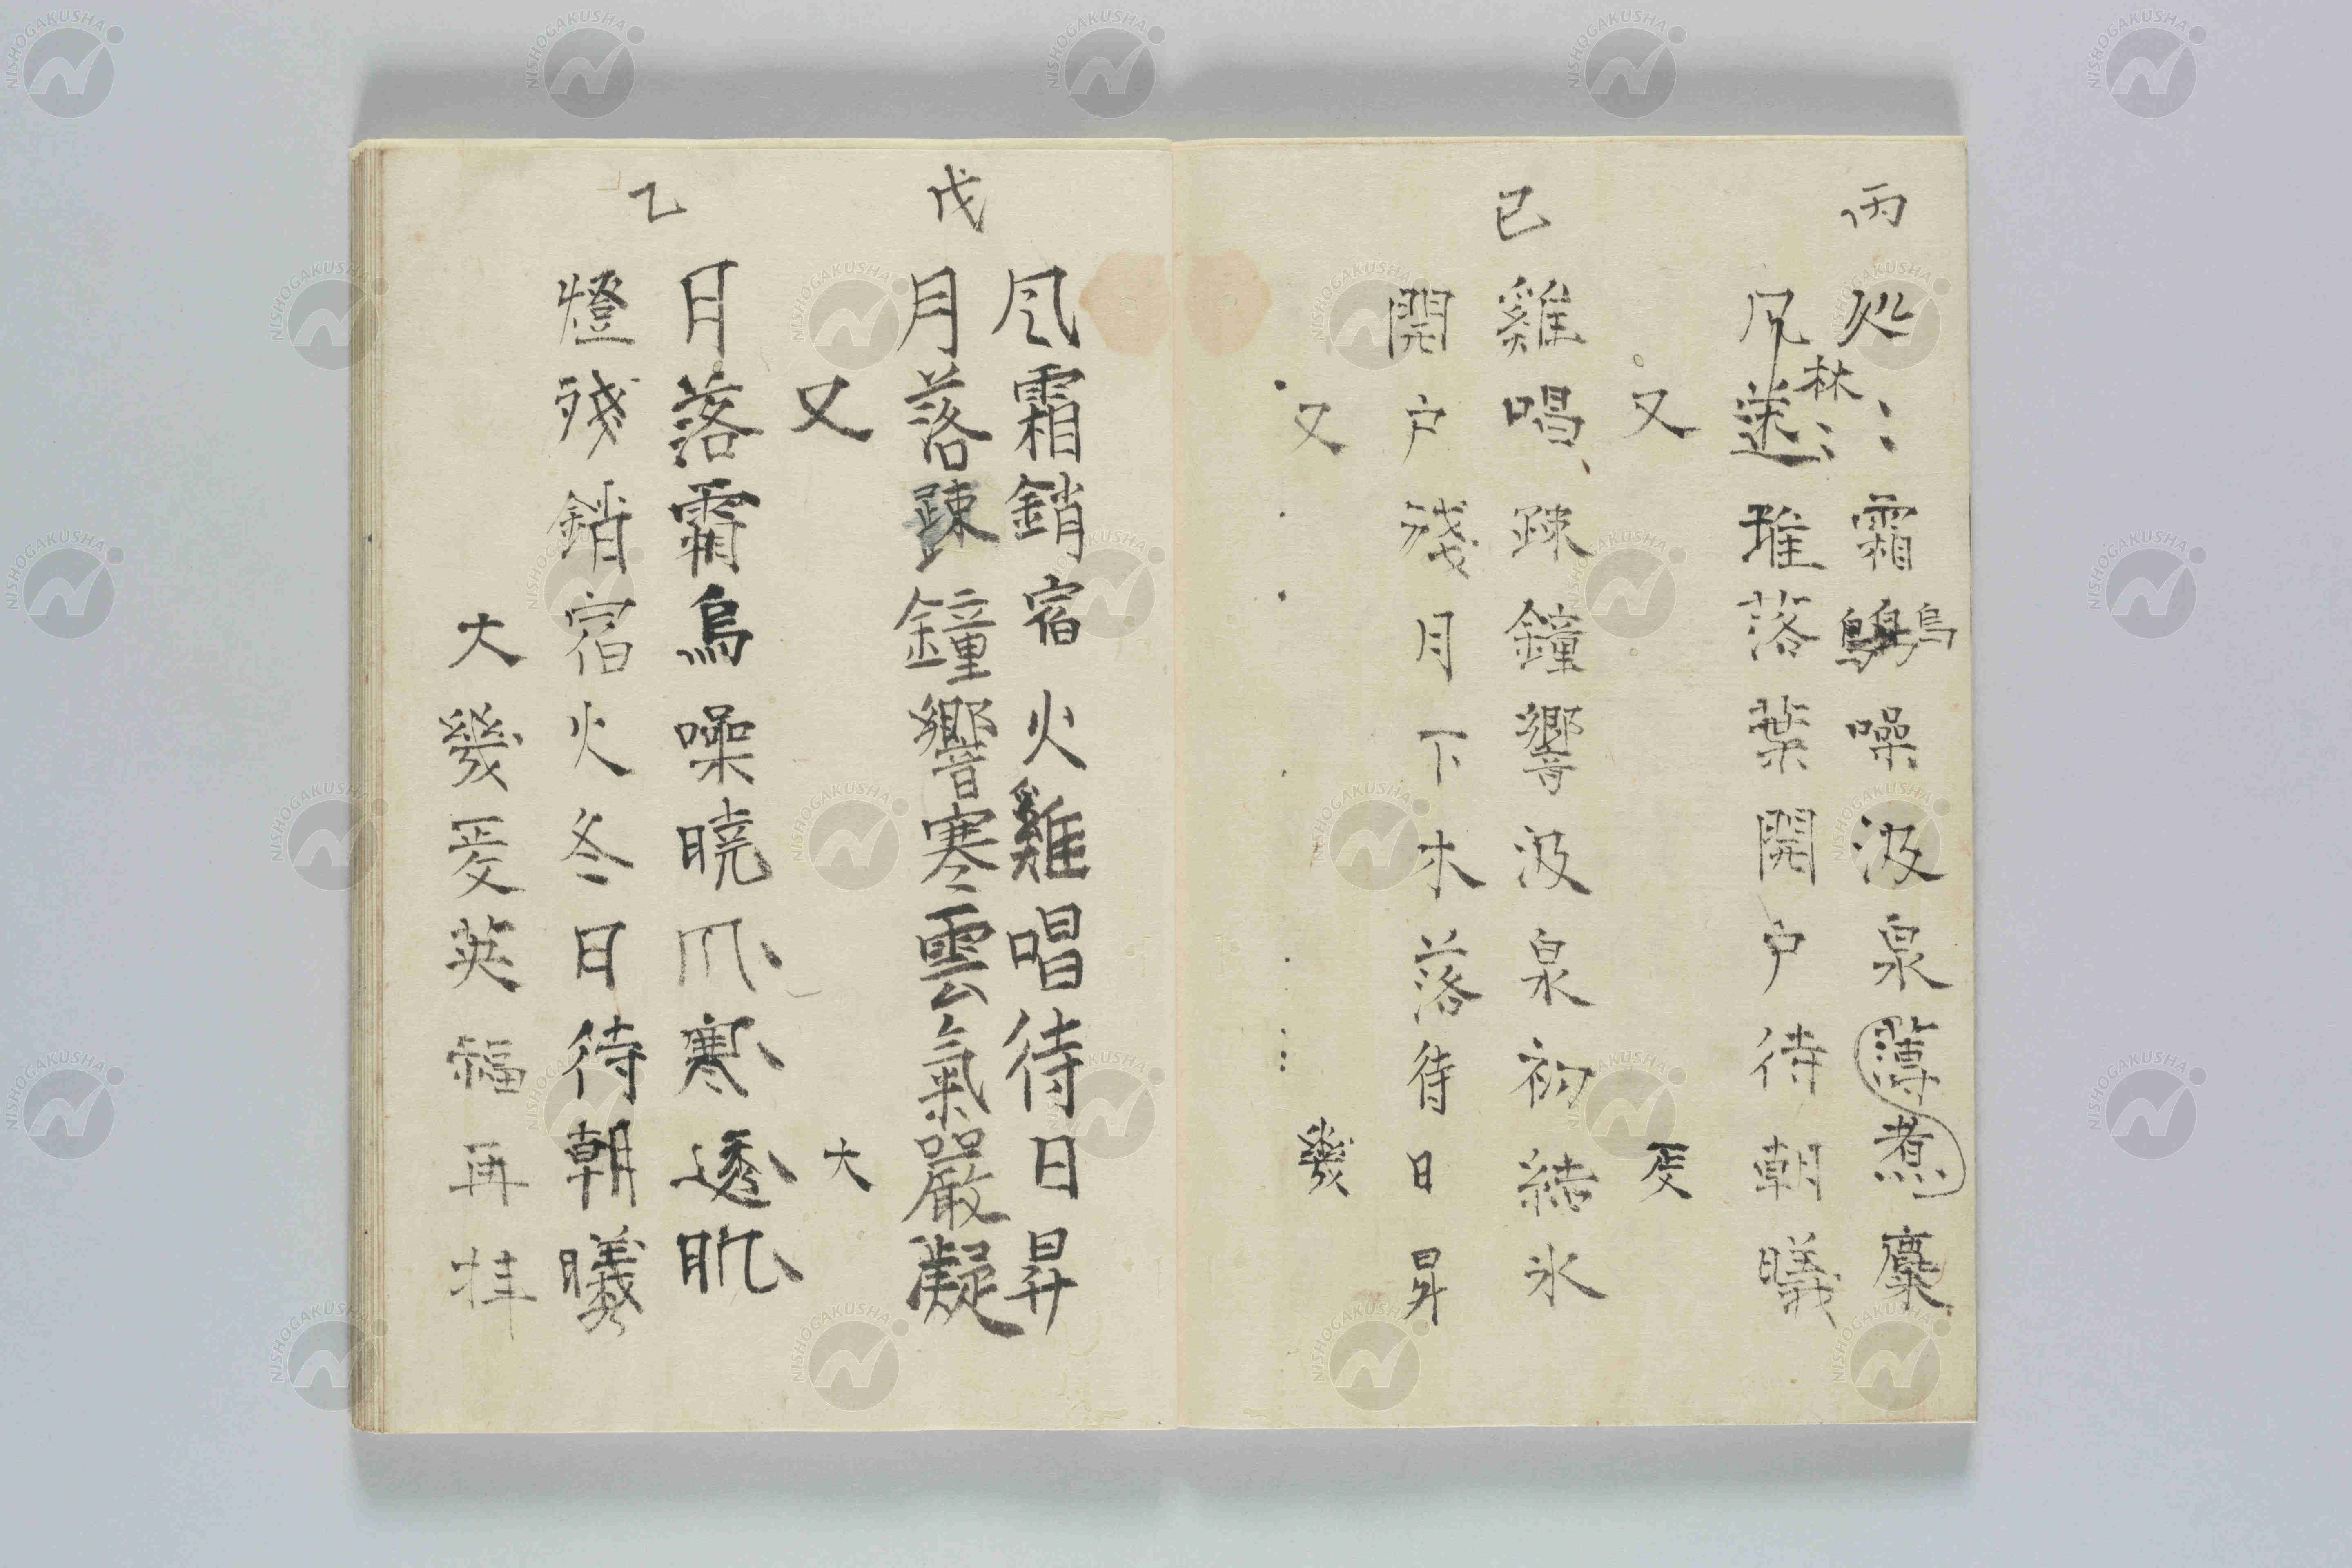 丙
処〻霜鳥噪汲泉薄煮糜
風送林〻堆落葉開戸待朝曦
又 爰
己
雞唱疎鐘響汲泉初結氷
開戸残月下木落待日昇
又 幾
風霜銷宿火雞唱待日昇
戊
月落疎鐘響寒雲氣嚴凝
又 大
乙
日落霜烏噪曉爪寒透肌
燈殘銷宿火冬日待朝曦
大幾爰英福再拝